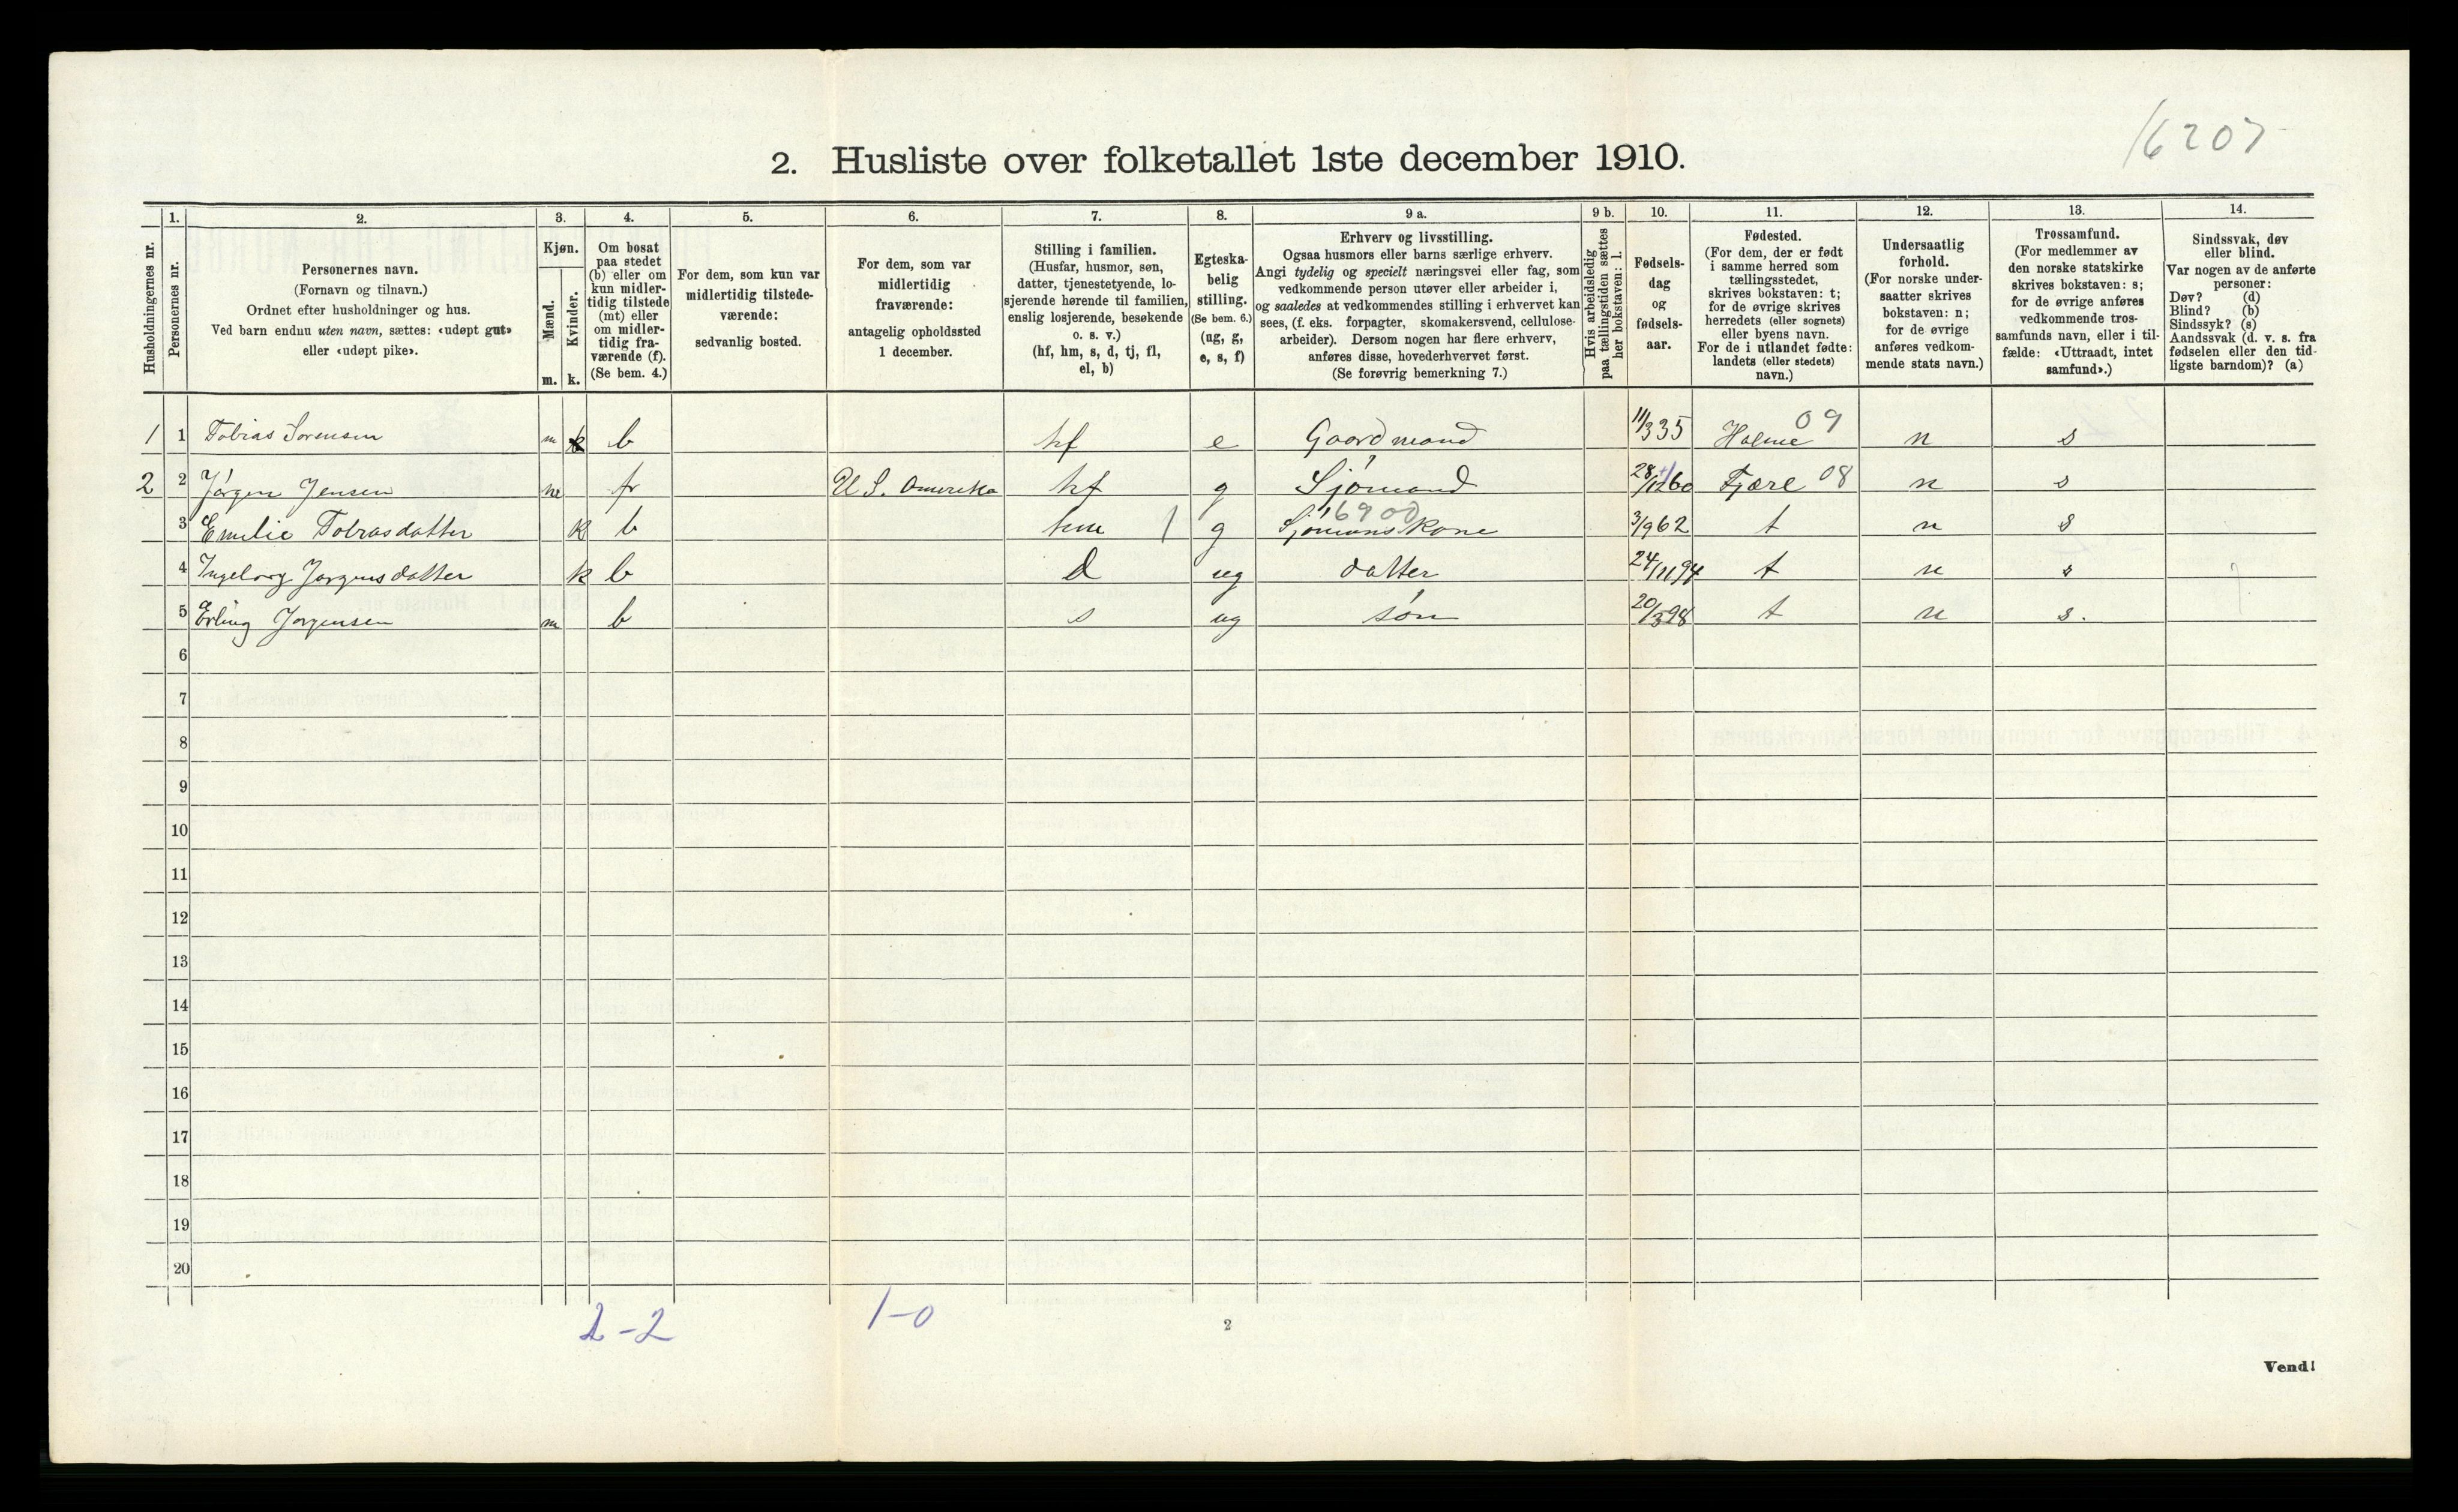 16207
2. Husliste over folketallet 1ste december 1910.
Husholdningernes nr.
1.
Personernes nr.
2.
Personernes navn.
(Fornavn og tilnavn.)
Ordnet efter husholdninger og hus.
Ved barn endnu uten navn, sættes: «udøpt gut»
eller «udøpt pike».
3.
Kjøn.
Mænd.
Kvinder.
m. k.
4.
Om bosat
paa stedet
(b) eller om
kun midler-
tidig tilstede
(mt) eller
om midler-
tidig fra-
værende (f).
(Se bem. 4.)
5.
For dem, som kun var
midlertidig tilstede-
værende:
sedvanlig bosted.
6.
For dem, som var
midlertidig
fraværende:
antagelig opholdssted
1 december.
7.
Stilling i familien.
(Husfar, husmor, søn,
datter, tjenestetyende, lo-
sjerende hørende til familien,
enslig losjerende, besøkende
o. s. v.)
(hf, hm, s, d, tj, fl,
el, b)
8.
Egteska-
belig
stilling.
(Se bem. 6.)
(ug, g,
e, s, f)
9 a.
Erhverv og livsstilling.
Ogsaa husmors eller barns særlige erhverv.
Angi tydelig og specielt næringsvei eller fag, som
vedkommende person utøver eller arbeider i,
og saaledes at vedkommendes stilling i erhvervet kan
sees, (f. eks. forpagter, skomakersvend, cellulose-
arbeider). Dersom nogen har flere erhverv,
anføres disse, hovederhvervet først.
(Se forøvrig bemerkning 7.)
9 b.
Hvis arbeidsledig
paa tællingstiden sættes
her bokstaven: l.
10.
Fødsels-
dag
og
fødsels-
aar.
11.
Fødested.
(For dem, der er født
i samme herred som
tællingsstedet,
skrives bokstaven: t;
for de øvrige skrives
herredets (eller sognets)
eller byens navn.
For de i utlandet fødte:
landets (eller stedets)
navn.)
12.
Undersaatlig
forhold.
(For norske under-
saatter skrives
bokstaven: n;
for de øvrige
anføres vedkom-
mende stats navn.)
13.
Trossamfund.
(For medlemmer av
den norske statskirke
skrives bokstaven: s;
for de øvrige anføres
vedkommende tros-
samfunds navn, eller i til-
fælde: «Uttraadt, intet
samfund».)
14.
Sindssvak, døv
eller blind.
Var nogen av de anførte
personer:
Døv? (d)
Blind? (b)
Sindssyk? (s)
Aandssvak (d. v. s. fra
fødselen eller den tid-
ligste barndom)? (a)
1 1 Tobias Sorensen m k b hf e Gaardmand 11/3 35 Holme 09 n s
2 2 Jórgen Jensen m fr U S. Amerika hf g Sjómand 28/12 60 Fjære 08 n s
3 Emilie Tobiasdatter k b hm 1 g Sjómans Kone 6900 3/9 62 t n s
4 Ingeborg Jorgensdatter k b d ug datter 24/11 94 t n s
5 Erling Jorgensen m b s ug són 20/3 98 t n s.
6
7
8
9
10
11
12
13
14
15
16
17
18
19
20
2-2 1-0
2
Vend!